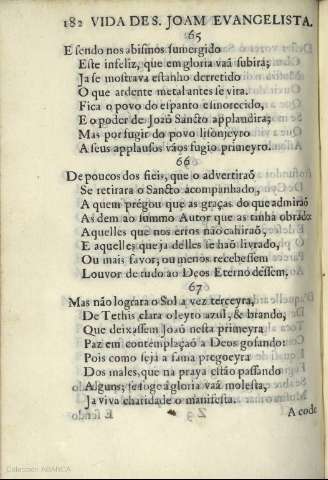 182 VIDA DE S. JOAM EVANGELISTA.
65
E sendo nos abismos sumergido
Este infeliz, que em gloria vaã subira;
Ja se mostrava estanho derretido
O que ardente metal antes se vira.
Fica o povo de espanto esmorecido,
E o poder de Joaõ Sancto applaudira;
Mas por fugir do povo lisonjeyro
A seus applausos vãos fugio primeyro.
66
De poucos dos fieis, que o advertiraõ
Se retirara o Sancto acompanhado,
A quem prégou que as graças do que admiraõ
As dem ao summo Autor que as tinha obrado:
Aquelles que nos erros naõ cahiraõ,
E aquelles que ja delles se haõ livrado,
Ou mais favor, ou menos recebessem
Louvor de tudo ao Deos Eterno déssem.
67
Mas naõ lográra o Sol a vez terceyra,
De Tethis clara o leyto azul, & brando,
Que deixassem Joaõ nesta primeyra
Paz em contemplaçaõ a Deos gosando:
Pois como seja a fama pregoeyra
Dos males, que na praya estão passando
Alguns; se foge á gloria vaã molesta,
Ja viva charidade o manifesta.
A code
Colección ABANCA